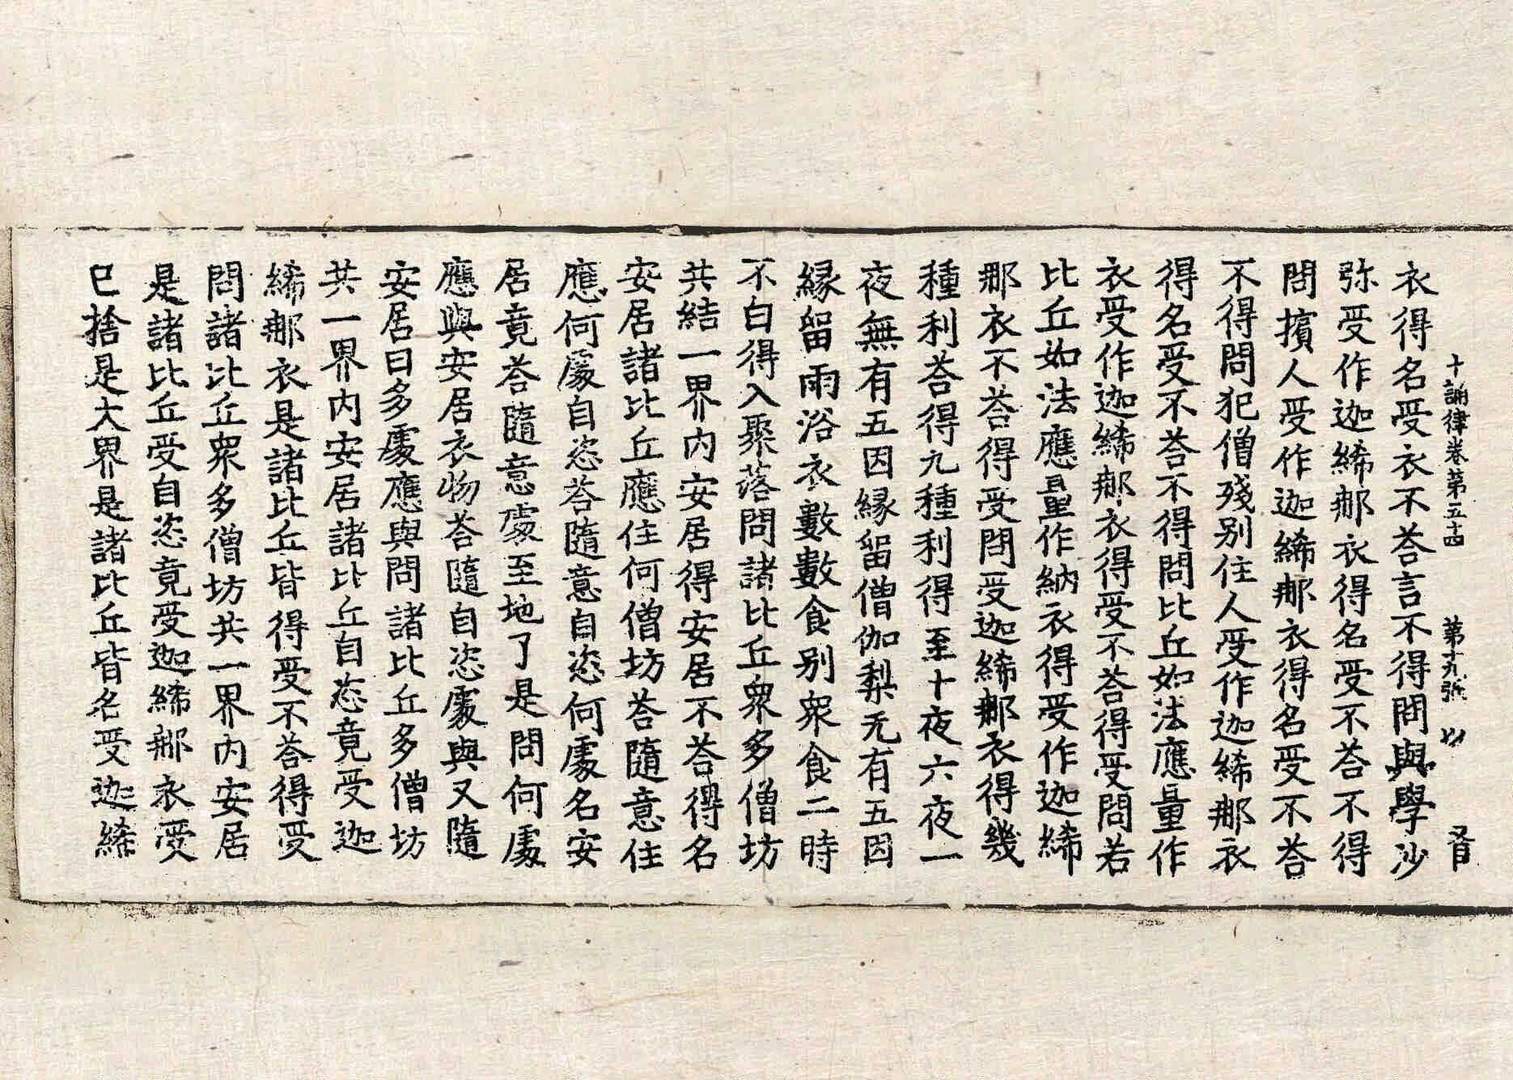 十誦律卷第五十四 第十九張
衣得名受衣不荅言不得問與學沙
弥受作迦絺那衣得名受不荅不得
問擯人受作迦絺那衣得名受不荅
不得問犯僧殘别住人受作迦絺那衣
得名受不荅不得問比丘如法應量作
衣受作迦絺那衣得受不荅得受問若
比丘如法應量作納衣得受作迦絺
那衣不荅得受問受迦絺那衣得幾
種利荅得九種利得至十夜六夜一
夜無有五因縁留僧伽梨无有五因
縁留雨浴衣數數食别衆食二時
不白得入聚落問諸比丘衆多僧坊
共結一界内安居得安居不荅得名
安居諸比丘應住何僧坊荅隨意住
應何處自恣荅隨意自恣何處名安
居竟荅隨意處至地了是問何處
應與安居衣物荅隨自恣處與又隨
安居日多處應與問諸比丘多僧坊
共一界内安居諸比丘自恣竟受迦
絺那衣是諸比丘皆得受不荅得受
問諸比丘衆多僧坊共一界内安居
是諸比丘受自恣竟受迦絺那衣受
已捨是大界是諸比丘皆名受迦絺